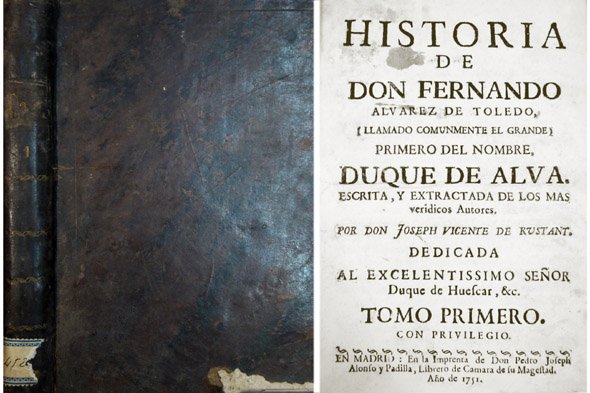 1
452
HISTORIA
DE
DON FERNANDO
ALVAREZ DE TOLEDO,
(LLAMADO COMUNMENTE EL GRANDE)
PRIMERO DEL NOMBRE,
DUQUE DE ALVA.
ESCRITA, Y EXTRACTADA DE LOS MAS
veridicos Autores,
POR DON JOSEPH VICENTE DE RUSTANT.
DEDICADA
AL EXCELENTISSIMO SEÑOR
Duque de Huescar, &c.
TOMO PRIMERO.
CON PRIVILEGIO.
EN MADRID: En la Imprenta de Don Pedro Joseph
Alonso y Padilla, Librero de Camara de su Magestad.
Año de 1751.